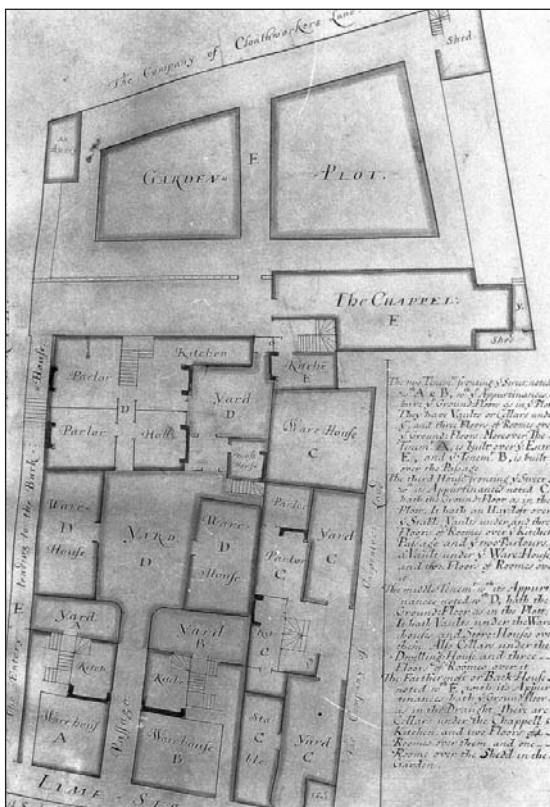 The Company of Cloathworkers Lane
Shed
GARDEN
E
PLOT.
The CHAPPEL.
E
y.
Shed
House.
Parlor
Kitchen
Kitche
E
D
Yard
D
Parlor
Hall
Ware House
C
Ware-
D
House
YARD
D
Ware-
D
House
Parlor
Parlor
C
Yard
C
Kit
C
E
Yard
A
Yard
B
Kitch
Kitch
leading to the Back
The Entery
Warehouse
A
Passage
Warehouse
B
Sta
C
ble
Yard
C
LIME-
The two Tenemts. fronting ye Street, noted
wth A & B, wth ye Appurtinances
have ye Ground-Floors as in ye Plot
They have Vaults or Cellars under
ye, and three Floors of Rooms over
ye ground-Floors Moreover The
Tenemt. A, is built over ye Entry
E, and ye Tenemt. B, is built
over the Passage
The third House fronting ye Street
wth its Appurtinances noted C
hath the Ground-Floor as in the
Plott, It hath an Hayloft over
ye Stable, Vaults under and three
Floors of Rooms over ye Kitchen
Passage and ye two Parlours,
a Vault under ye Ware-House
and two Floors of Rooms over
it
The middle Tenemt. wth its Appurti
nances noted wth D, hath the
Ground-Floor as in the Plott
It hath Vaults under the Ware
houses, and Store-Houses over
them, Also Cellars under the
Dwelling-House and three
Floors of Roomes over it
The Farthermost or Back-House
noted wth E, with its Appur
tinances hath ye Ground-Floor
as in the Draught. There are
Cellars under the Chappell &
Kitchen, and two Floors of
Roomes over them, and one
Roome over the Shedd in the
Garden.